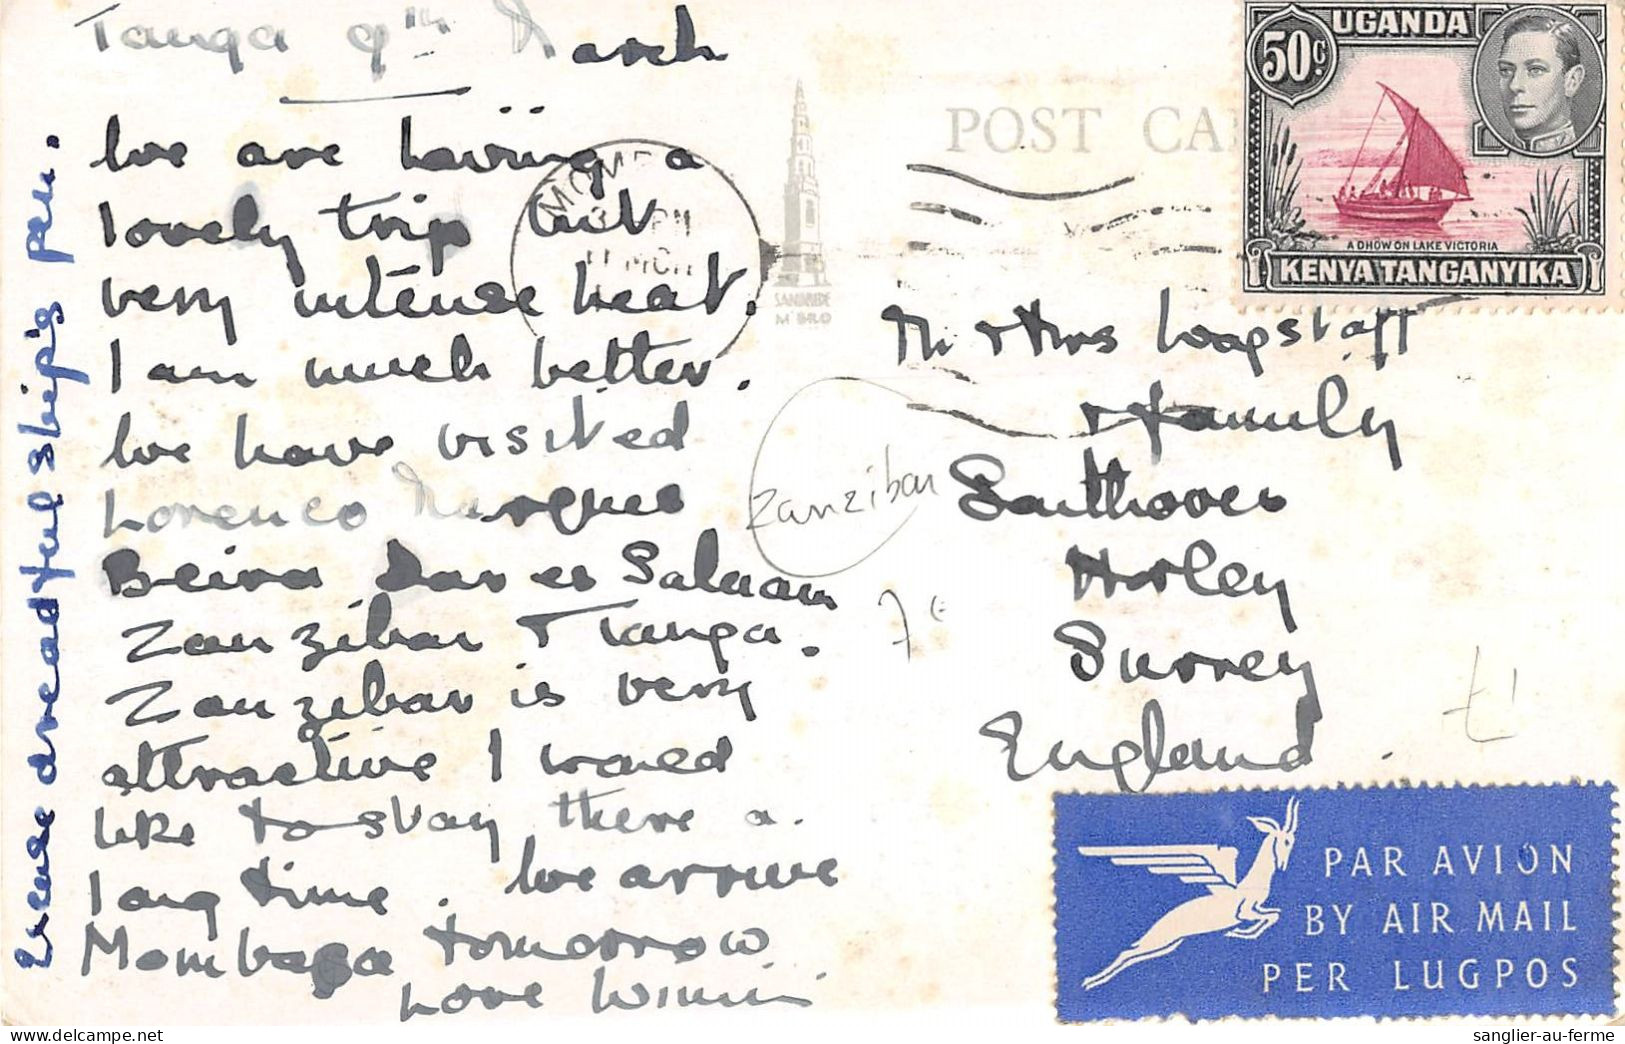 Tanga 9th March
We are having a
lovely trip but
very intense heat.
I am much better.
We have visited
Lorenco Marques
Beira Dar es Salaam
Zanzibar & Tanga.
Zanzibar is very
attractive I would
like to stay there a
long time. We arrive
Mombasa tomorrow
Love Winnie
dreadful ship's pen.
MOMB
PM
11 MCH
POST CA
UGANDA
50c.
A DHOW ON LAKE VICTORIA
KENYA TANGANYIKA
Mr & Mrs Wagstaff
& family
Smithover
Horley
Surrey
England.
Zanzibar
7€
PAR AVION
BY AIR MAIL
PER LUGPOS
sanglier-au-ferme